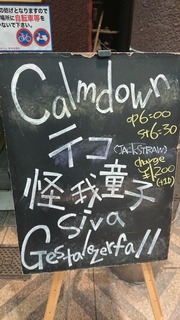 の妨げとなりますので
場所に自転車等を
Calmdown
OP6=00
St6-30
テコ
(JackSTRAW)
charge
¥1,200
(+1D)
怪我童子
Siva
Gestalezerfall